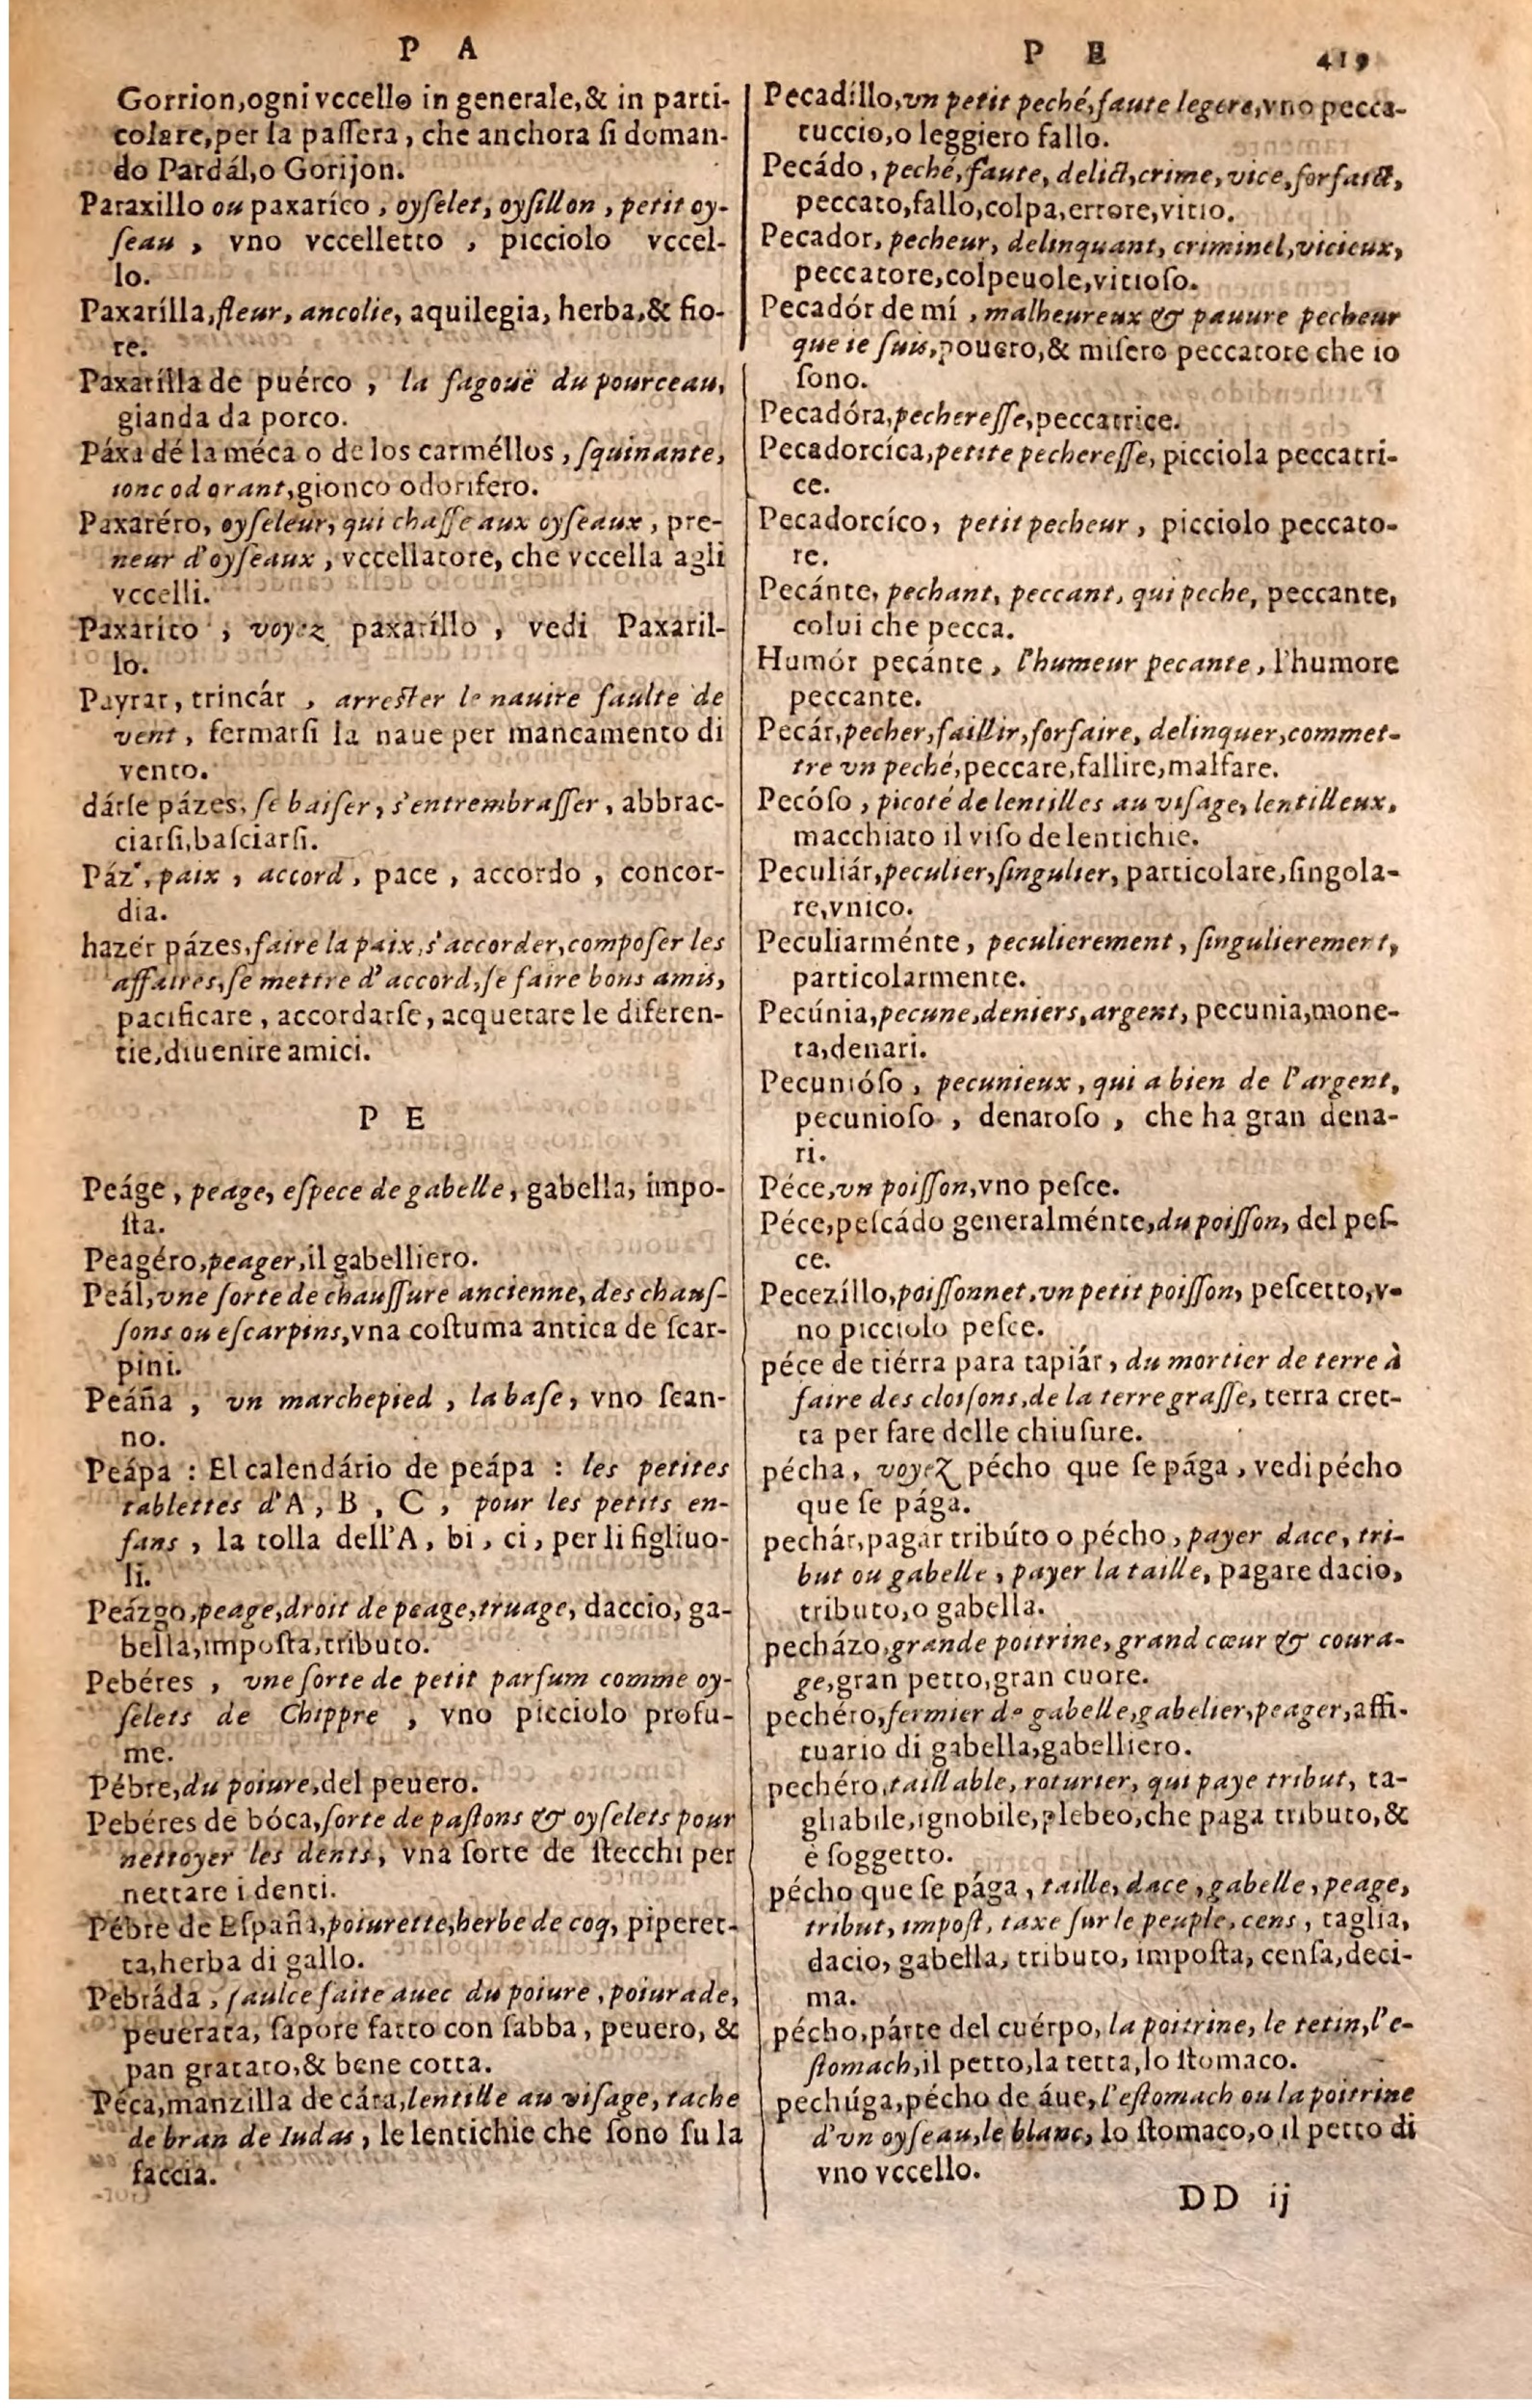 P A
Gorrion,ogni vccello in generale,& in parti-
colare,per la paſſera, che anchora ſi doman-
do Pardál,o Gorijon.
Paraxillo ou paxaríco, oyſelet, oyſillon, petit oy-
ſeau, vno vccelletto, picciolo vccel-
lo.
Paxarílla,fleur, ancolie, aquilegia, herba,& fio-
re.
Paxarílla de puérco, la fagouë du pourceau,
gianda da porco.
Páxa dé la méca o de los carméllos, ſquinante,
ionc odorant,gionco odorifero.
Paxaréro, oyſeleur, qui chaſſe aux oyſeaux, pre-
neur d'oyſeaux, vccellatore, che vccella agli
vccelli.
Paxarito, voyez paxaríllo, vedi Paxaril-
lo.
Payrar, trincár, arreſter le nauire faulte de
vent, fermarſi la naue per mancamento di
vento.
dárſe pázes, ſe baiſer, s'entrembraſſer, abbrac-
ciarſi,baſciarſi.
Páz, paix, accord, pace, accordo, concor-
dia.
hazér pázes,faire la paix,s'accorder,compoſer les
affaires,ſe mettre d'accord,ſe faire bons amis,
pacificare, accordarſe, acquetare le diferen-
tie,diuenire amici.
P E
Peáge, peage, eſpece de gabelle, gabella, impo-
ſta.
Peagéro,peager,il gabelliero.
Peál,vne ſorte de chauſſure ancienne, des chauſ-
ſons ou eſcarpins,vna coſtuma antica de ſcar-
pini.
Peáña, vn marchepied, la baſe, vno ſcan-
no.
Peápa : El calendário de peápa : les petites
tablettes d'A, B, C, pour les petits en-
fans, la tolla dell'A, bi, ci, per li figliuo-
li.
Peázgo,peage,droit de peage,truage, daccio, ga-
bella,impoſta,tributo.
Pebéres, vne ſorte de petit parfum comme oy-
ſelets de Chippre, vno picciolo profu-
me.
Pébre,du poiure,del peuero.
Pebéres de bóca,ſorte de paſtons & oyſelets pour
nettoyer les dents, vna ſorte de ſtecchi per
nettare i denti.
Pébre de Eſpaña,poiurette,herbe de coq, piperet-
ta,herba di gallo.
Pebráda, ſaulce faite auec du poiure, poiurade,
peuerata, ſapore fatto con ſabba, peuero, &
pan gratato,& bene cotta.
Péca,manzilla de cára,lentille au viſage, tache
de bran de Iudas, le lentichie che ſono ſu la
faccia.
P E 419
Pecadíllo,vn petit peché,faute legere,vno pecca-
tuccio,o leggiero fallo.
Pecádo, peché, faute, delict,crime, vice, forfaict,
peccato,fallo,colpa,errore,vitio.
Pecador, pecheur, delinquant, criminel,vicieux,
peccatore,colpeuole,vitioſo.
Pecadór de mí, malheureux & pauure pecheur
que ie ſuis,pouero,& miſero peccatore che io
ſono.
Pecadóra,pechereſſe,peccatrice.
Pecadorcíca,petite pechereſſe, picciola peccatri-
ce.
Pecadorcíco, petit pecheur, picciolo peccato-
re.
Pecánte, pechant, peccant, qui peche, peccante,
colui che pecca.
Humór pecánte, l'humeur pecante, l'humore
peccante.
Pecár,pecher,faillir,forfaire, delinquer,commet-
tre vn peché,peccare,fallire,malfare.
Pecóſo, picoté de lentilles au viſage, lentilleux,
macchiato il viſo de lentichie.
Peculiár,peculier,ſingulier, particolare,ſingola-
re,vnico.
Peculiarménte, peculierement, ſingulierement,
particolarmente.
Pecúnia,pecune,deniers,argent, pecunia,mone-
ta,denari.
Pecunióſo, pecunieux, qui a bien de l'argent,
pecunioſo, denaroſo, che ha gran dena-
ri.
Péce,vn poiſſon,vno peſce.
Péce,peſcádo generalménte,du poiſſon, del peſ-
ce.
Pecezíllo,poiſſonnet,vn petit poiſſon, peſcetto,v-
no picciolo peſce.
péce de tiérra para tapiár, du mortier de terre à
faire des cloiſons,de la terre graſſe, terra cret-
ta per fare delle chiuſure.
pécha, voyez pécho que ſe pága, vedi pécho
que ſe pága.
pechár,pagar tribúto o pécho, payer dace, tri-
but ou gabelle, payer la taille, pagare dacio,
tributo,o gabella.
pecházo,grande poitrine,grand cœur & coura-
ge,gran petto,gran cuore.
pechéro,fermier de gabelle,gabelier,peager,affi-
tuario di gabella,gabelliero.
pechéro,taillable, roturier, qui paye tribut, ta-
gliabile,ignobile,plebeo,che paga tributo,&
è ſoggetto.
pécho que ſe pága, taille, dace, gabelle, peage,
tribut, impoſt, taxe ſur le peuple, cens, taglia,
dacio, gabella, tributo, impoſta, cenſa,deci-
ma.
pécho,párte del cuérpo, la poitrine, le tetin,l'e-
ſtomach,il petto,la tetta,lo ſtomaco.
pechúga,pécho de áue, l'eſtomach ou la poitrine
d'vn oyſeau,le blanc, lo ſtomaco,o il petto di
vno vccello.
DD ij